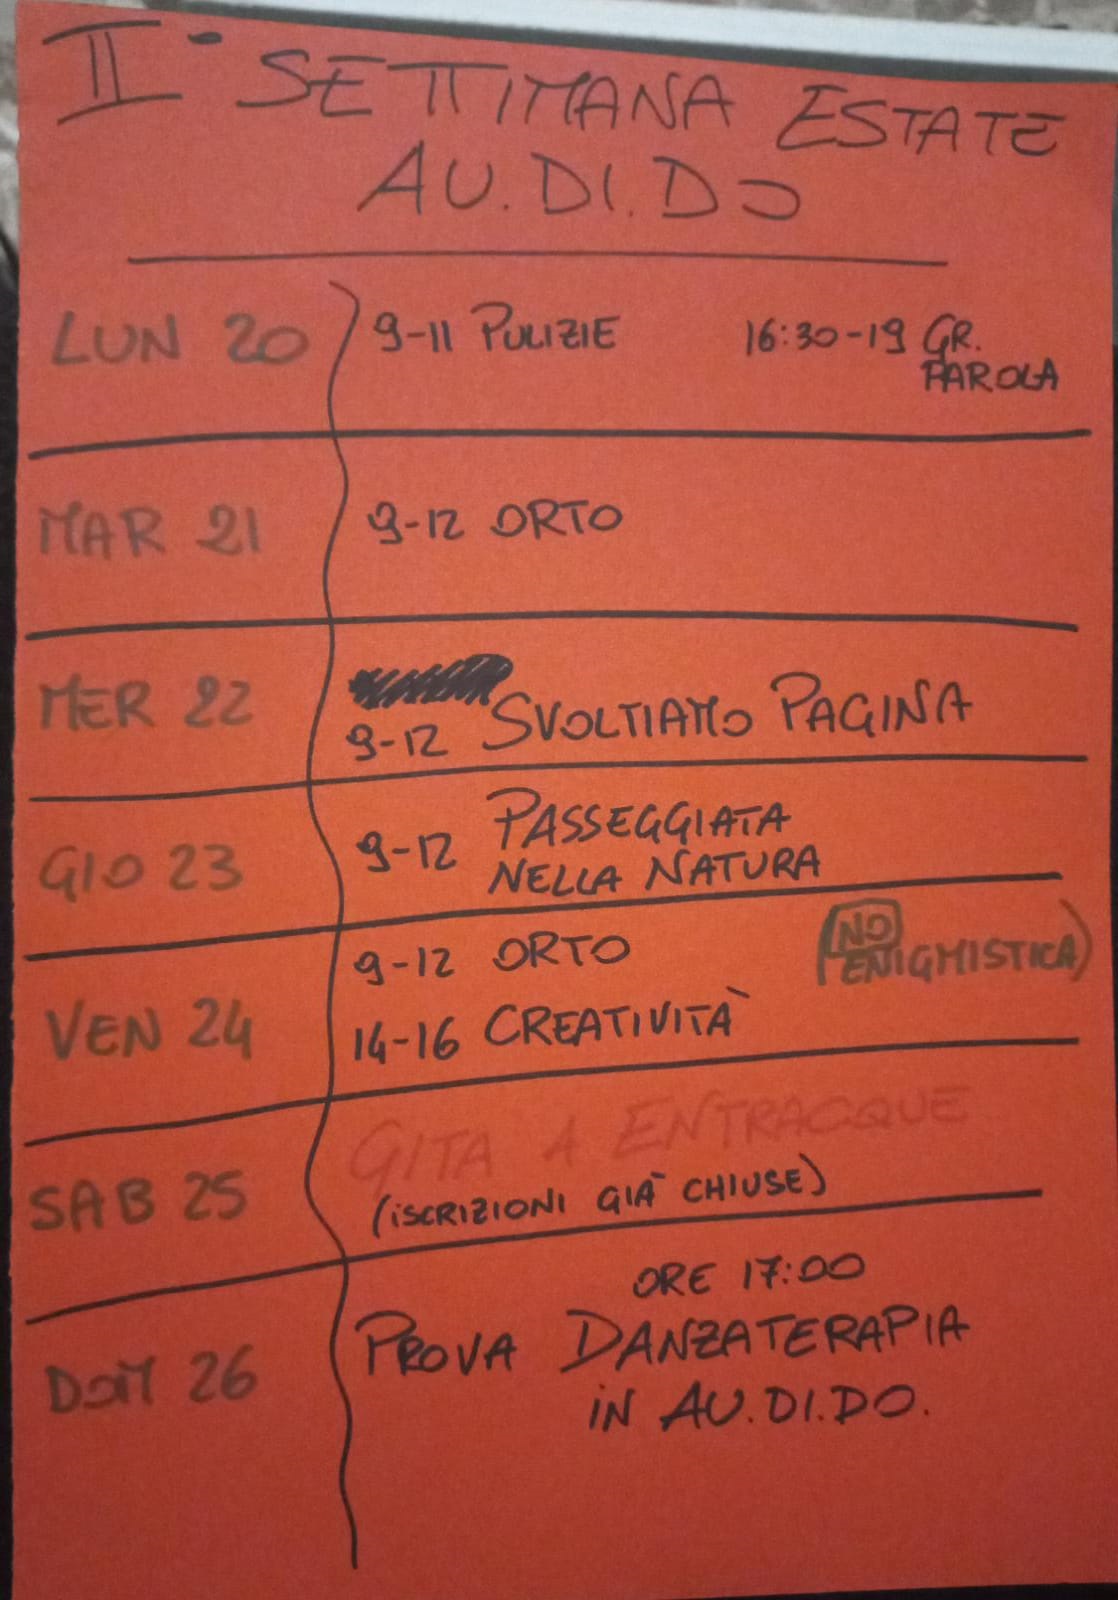 II° SETTIMANA ESTATE
AU.DI.DO
LUN 20 9-11 PULIZIE 16:30-19 GR.
PAROLA
MAR 21 9-12 ORTO
MER 22
9-12 SVOLTIAMO PAGINA
GIO 23 9-12 PASSEGGIATA
NELLA NATURA
9-12 ORTO (NO
ENIGMISTICA)
VEN 24 14-16 CREATIVITÀ
GITA A ENTRACQUE
SAB 25 (iSCRIZIONI GIÀ CHIUSE)
ORE 17:00
DOM 26 PROVA DANZATERAPIA
iN AU.DI.DO.